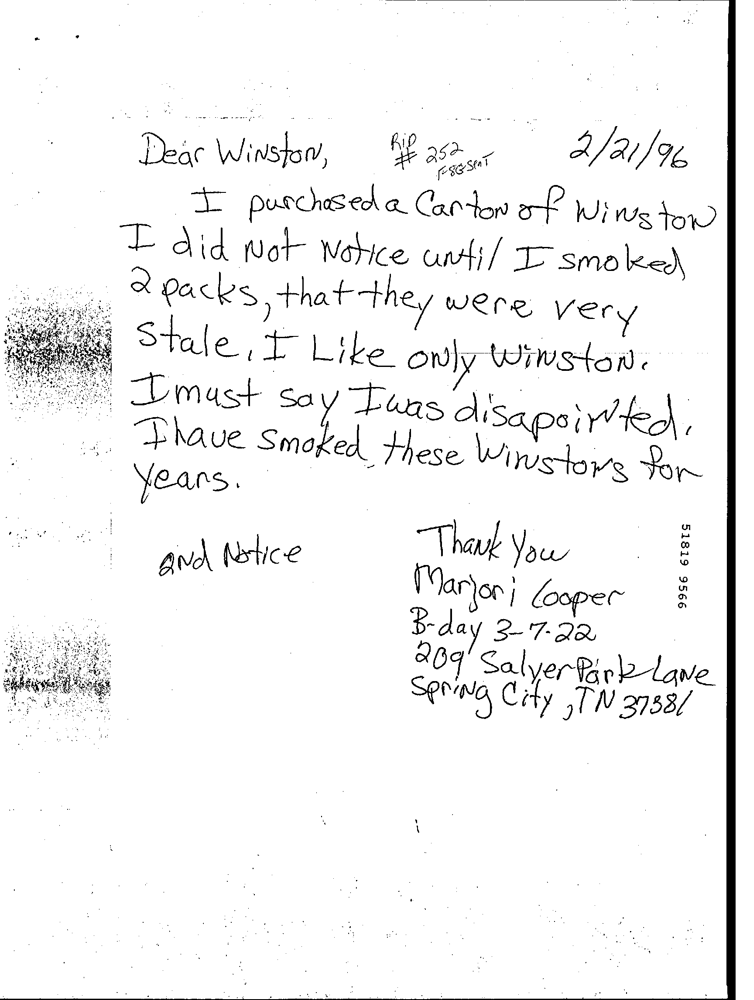 Dear Winston,
RiP # 252
F-8G SENT
2/21/96
I purchased a Carton of Winston
I did Not Notice until I smoked
2 packs, that they were very
Stale. I Like only Winston.
I must say I was disapointed.
I have smoked these Winstons for
years.
2nd Notice
Thank You
Marjori Cooper
B-day 3-7-22
209 Salyer Park Lane
Spring City, TN 37381
51819 9566